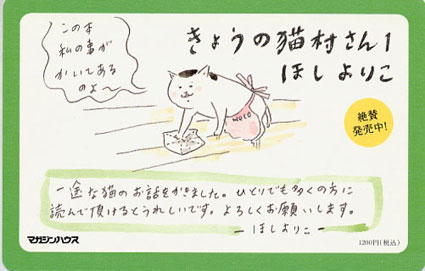 この本
私の事が
かいてある
のよ〜
きょうの猫村さん1
ほしよりこ
絶賛
発売中!
NEKO
一途な猫のお話をかきました。ひとりでも多くの方に
読んで頂けるとうれしいです。よろしくお願いします。
ーほしよりこー
マガジンハウス
1200円(税込)